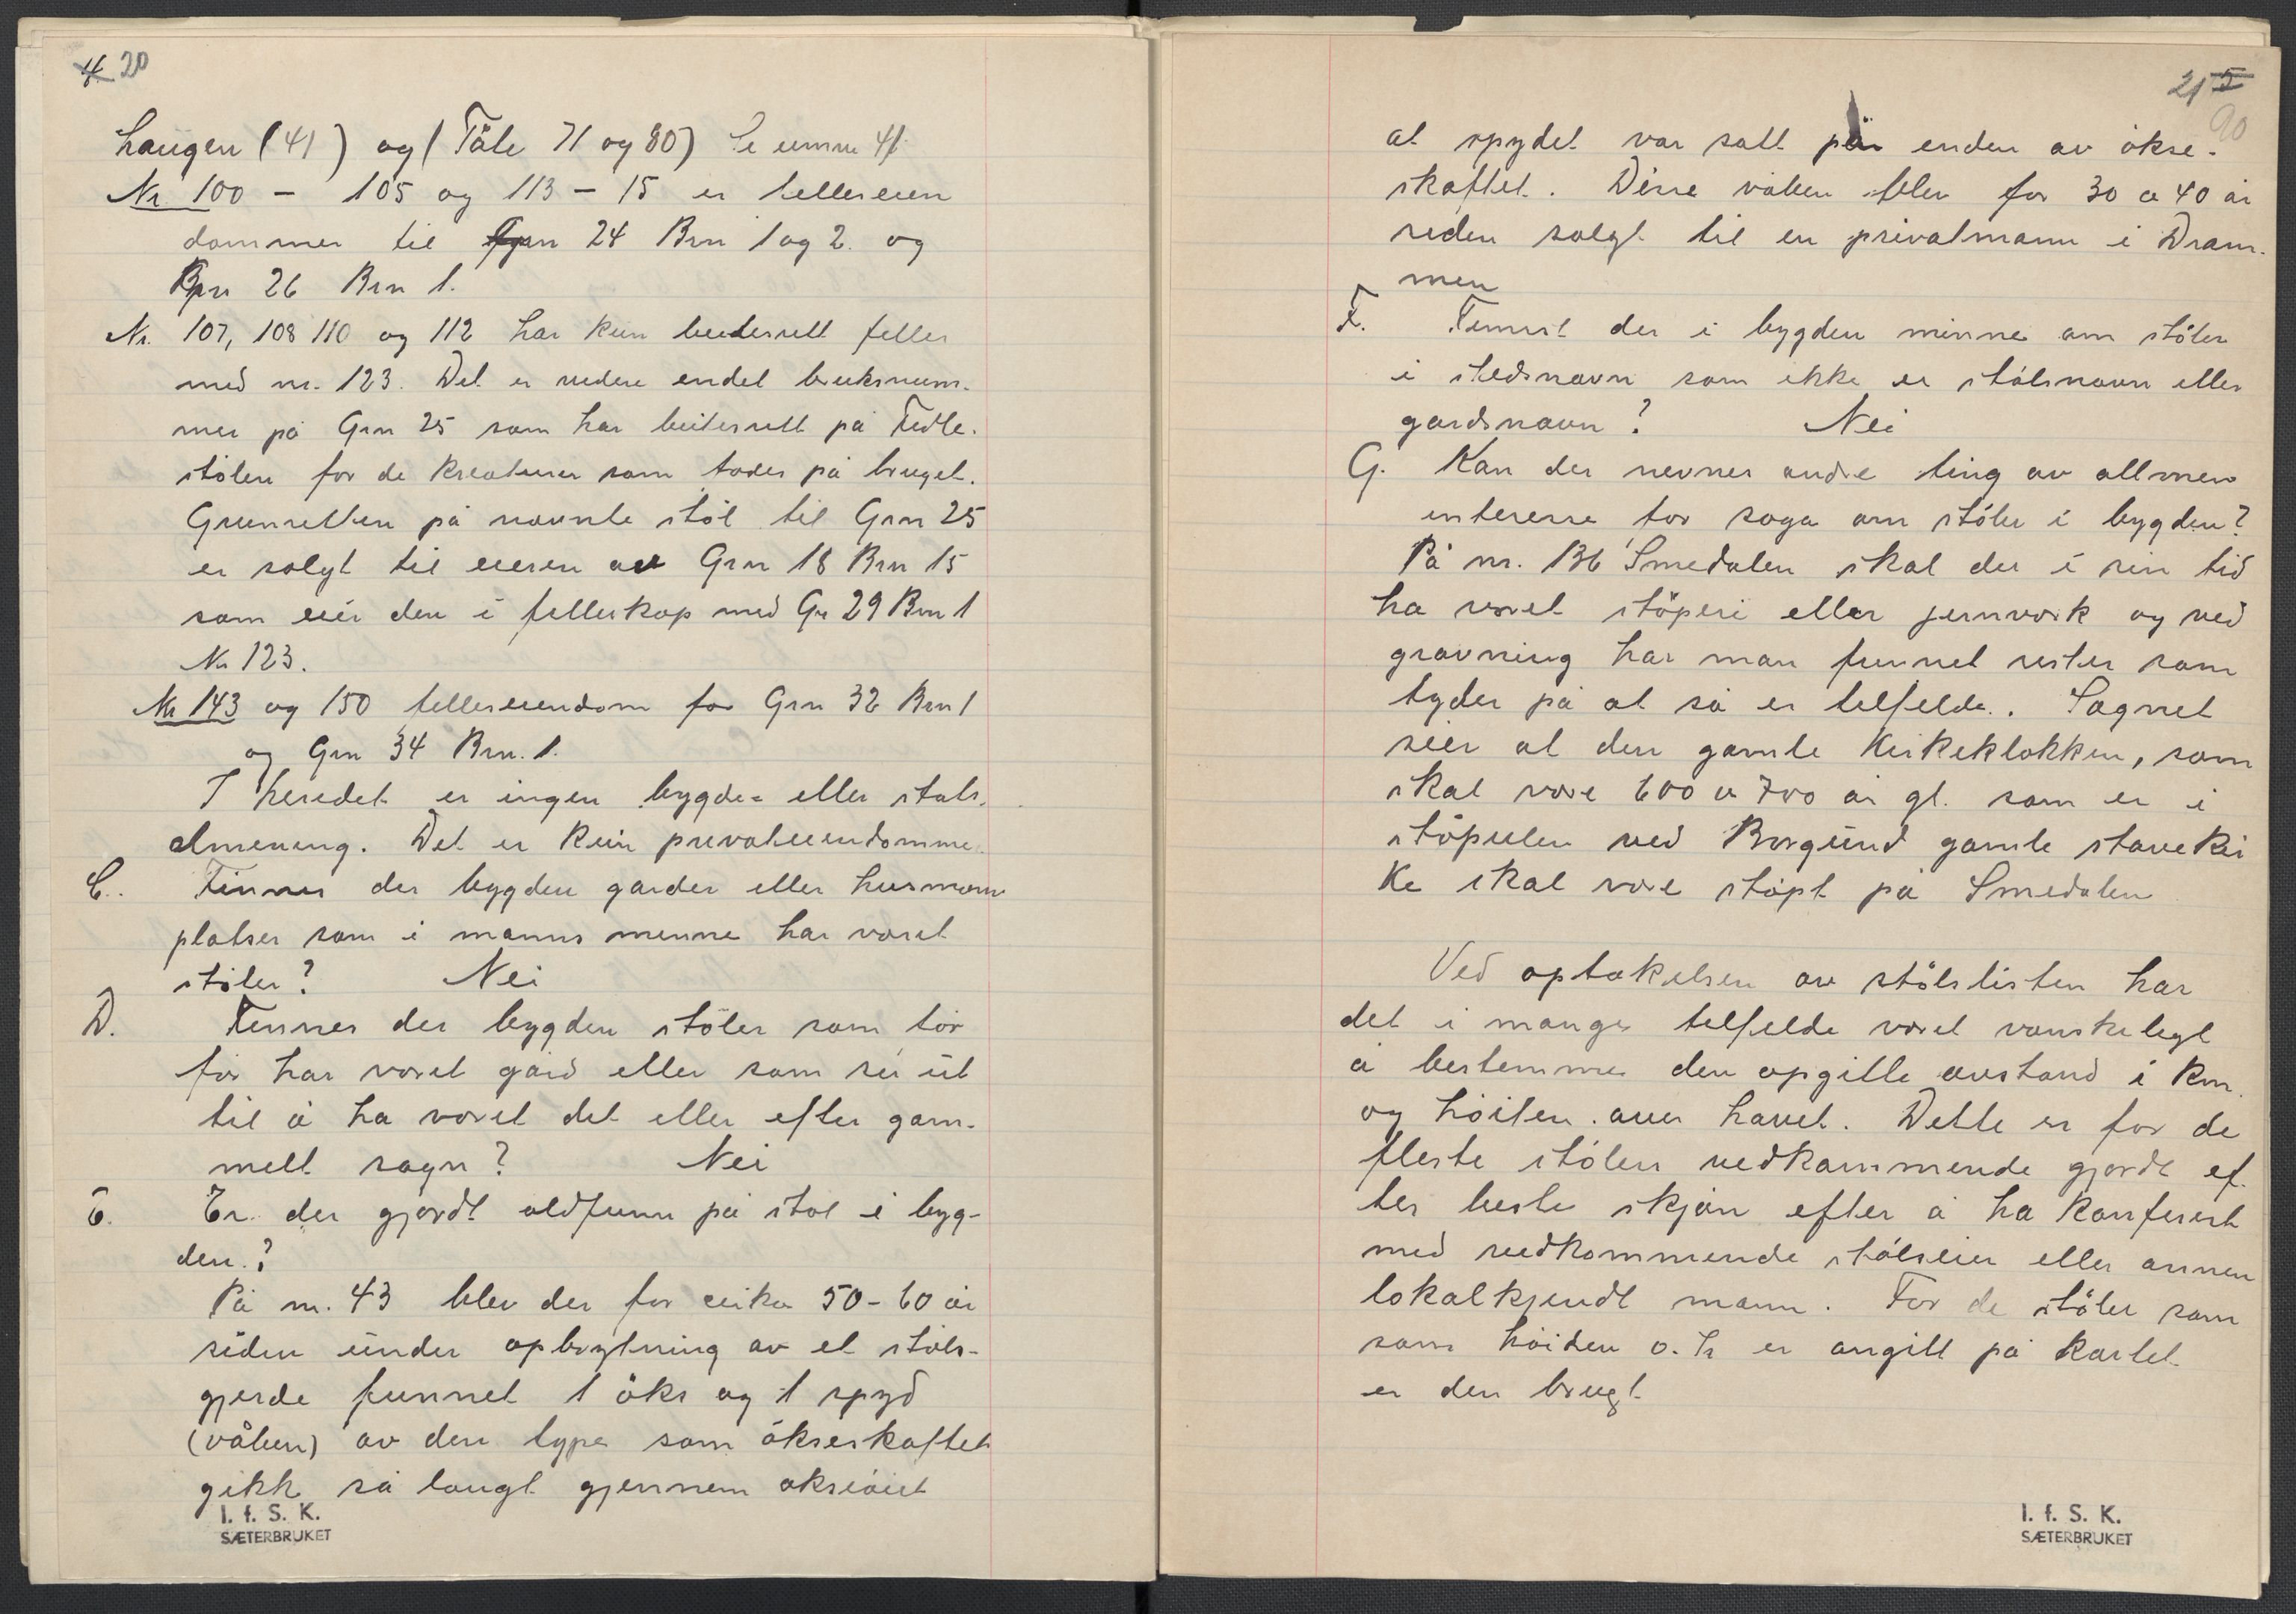 20
haugen (41) og (Tåle 71 og 80) Se emne 41
Nr 100 - 105 og 113 - 15 er felleseien
dommer til Grn 24 Brn 1 og 2. og
Grn 26 Brn 1.
Nr. 107, 108 110 og 112 har kun beitesrett felles
med nr. 123. Det er videre endel bruksnum-
mer på Grn 25 som har beitesrett på Fedle-
stölen for de kreaturer som fødes på bruget.
Grunretten på nævnte stöl til Grn 25
er solgt til eieren av Grn 18 Brn 15
som eier den i felleskap med Gr 29 Brn 1
Nr 123.
Nr 143 og 150 felleseiendom for Grn 32 Brn 1
og Grn 34 Brn. 1.
I heredet er ingen bygde= eller stats-
almening. Det er kun privateiendomme.
C. Finnes der bygden garder eller husmann
platser som i manns minne har været
støler? Nei
D. Finnes der bygden stöler som før
før har været gård eller som ser ut
til å ha været det eller efter gam-
melt sagn? Nei
E. Er der gjordt oldfunn på støl i byg-
den.?
På nr. 43 blev der for cirka 50-60 år
siden under opbrytning av et støls-
gjerde funnet 1 öks og 1 spyd
(våben) av den type som økseskaftet
gikk så langt gjennem økseöiet
I. f. S. K.
SÆTERBRUKET
21
90
at spydet var satt på enden av økse-
skaftet. Disse våben blev for 30 a 40 år
siden solgt til en privatmann i Dram-
men
F. Finnst der i bygden minne om stöler
i stedsnavn som ikke er stølsnavn eller
gardsnavn? Nei
G. Kan der nevnes andre ting av allmen
interesse for soga om stöler i bygden?
På nr. 136 Smedalen skal der i sin tid
ha været støperi eller jernverk og ved
gravning har man funnet rester som
tyder på at så er tilfelde. Sagnet
seier at den gamle Kirkeklokken, som
skal være 600 a 700 år gl. som er i
støpulen ved Borgund gamle stavekir
ke skal være støpt på Smedalen
Ved optakelsen av stölslisten har
det i mange tilfelde været vanskelegt
å bestemme den opgitte avstand i km.
og höiden over havet. Dette er for de
fleste stölers vedkommende gjordt ef-
ter beste skjön efter å ha konferert
med vedkommende stølseier eller annen
lokalkjendt mann. For de stöler som
som höiden o. h er angitt på kartet
er den brugt
I. f. S. K.
SÆTERBRUKET